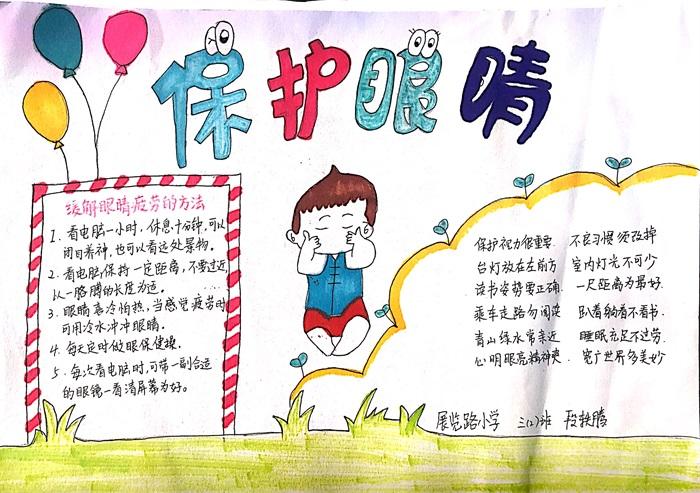 保护眼睛
缓解眼睛疲劳的方法
1、看电脑一小时，休息十分钟，可以
闭目养神，也可以看远处景物。
2、看电脑保持一定距离，不要过近
以一胳膊的长度为适。
3、眼睛喜冷怕热，当感觉疲劳时
可用冷水冲冲眼睛。
4、每天定时做眼保健操。
5、每次看电脑时，可带一副合适
的眼镜—看清屏幕为好。
保护视力很重要 不良习惯须改掉
台灯放在左前方 室内灯光不可少
读书姿势要正确 一尺距离为最好
乘车走路勿阅读 卧着躺着不看书
青山绿水常亲近 睡眠充足不过劳
心明眼亮精神爽 宽广世界多美妙
展览路小学 三(2)班 段轶腾